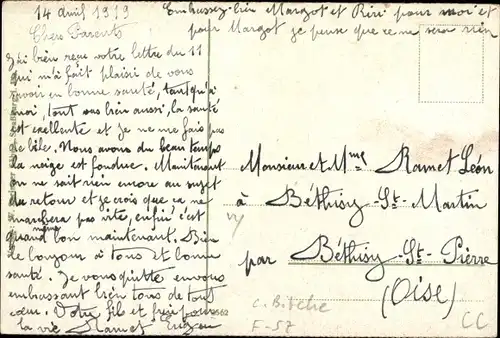 14 avril 1919
Chers Parents
J'ai bien reçu votre lettre du 11
qui m'a fait plaisir de vous
savoir en bonne santé, tant qu'à
moi, tout va bien aussi, la santé
est exellente et je ne me fais pas
de bile. Nous avons du beau temps
la neige est fondue. Maintenant
on ne sait rien encore au sujet
du retour et je crois que ça ne
marchera pas vite, enfin c'est
quand même bon maintenant. Bien
de bonjour à tous et bonne
santé. Je vous quitte en vous
embrassant bien tous de tout
cœur. Votre fils et frère pour
la vie Ramet Eugène
Embrassez bien Margot et Riri pour moi et
pour Margot je pense que ce ne sera rien
Monsieur et Mme Ramet Léon
à Béthisy-St-Martin
par Béthisy-St-Pierre
(Oise)
C. Bitche
F-57
CC